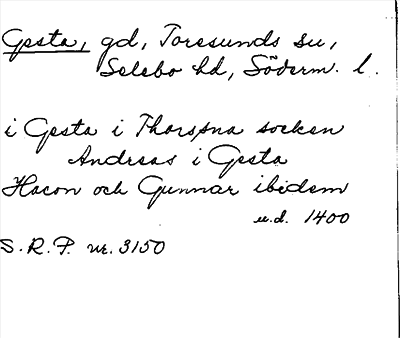 Gesta, gd, Toresunds su,
Selebo hd, Söderm. l.
i Gesta i Thorspna socken
Andreas i Gesta
Hacon och Gunnar ibidem
u.d. 1400
S.R.P. nr. 3150